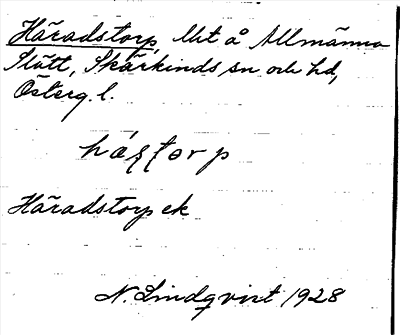 Häradstorp, lht å Allmänna
Slätt, Skärkinds sn och hd,
Österg. l.
Häradstorp ek
N. Lindqvist 1928